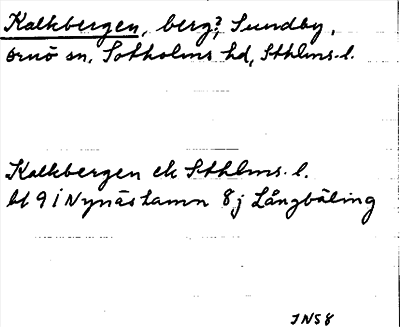 Kalkbergen, berg?, Sundby,
Ornö sn, Sotholms hd, Sthlms. l.
Kalkbergen ek Sthlms. l.
bl 9 I Nynäshamn 8j Långbäling
JNS8